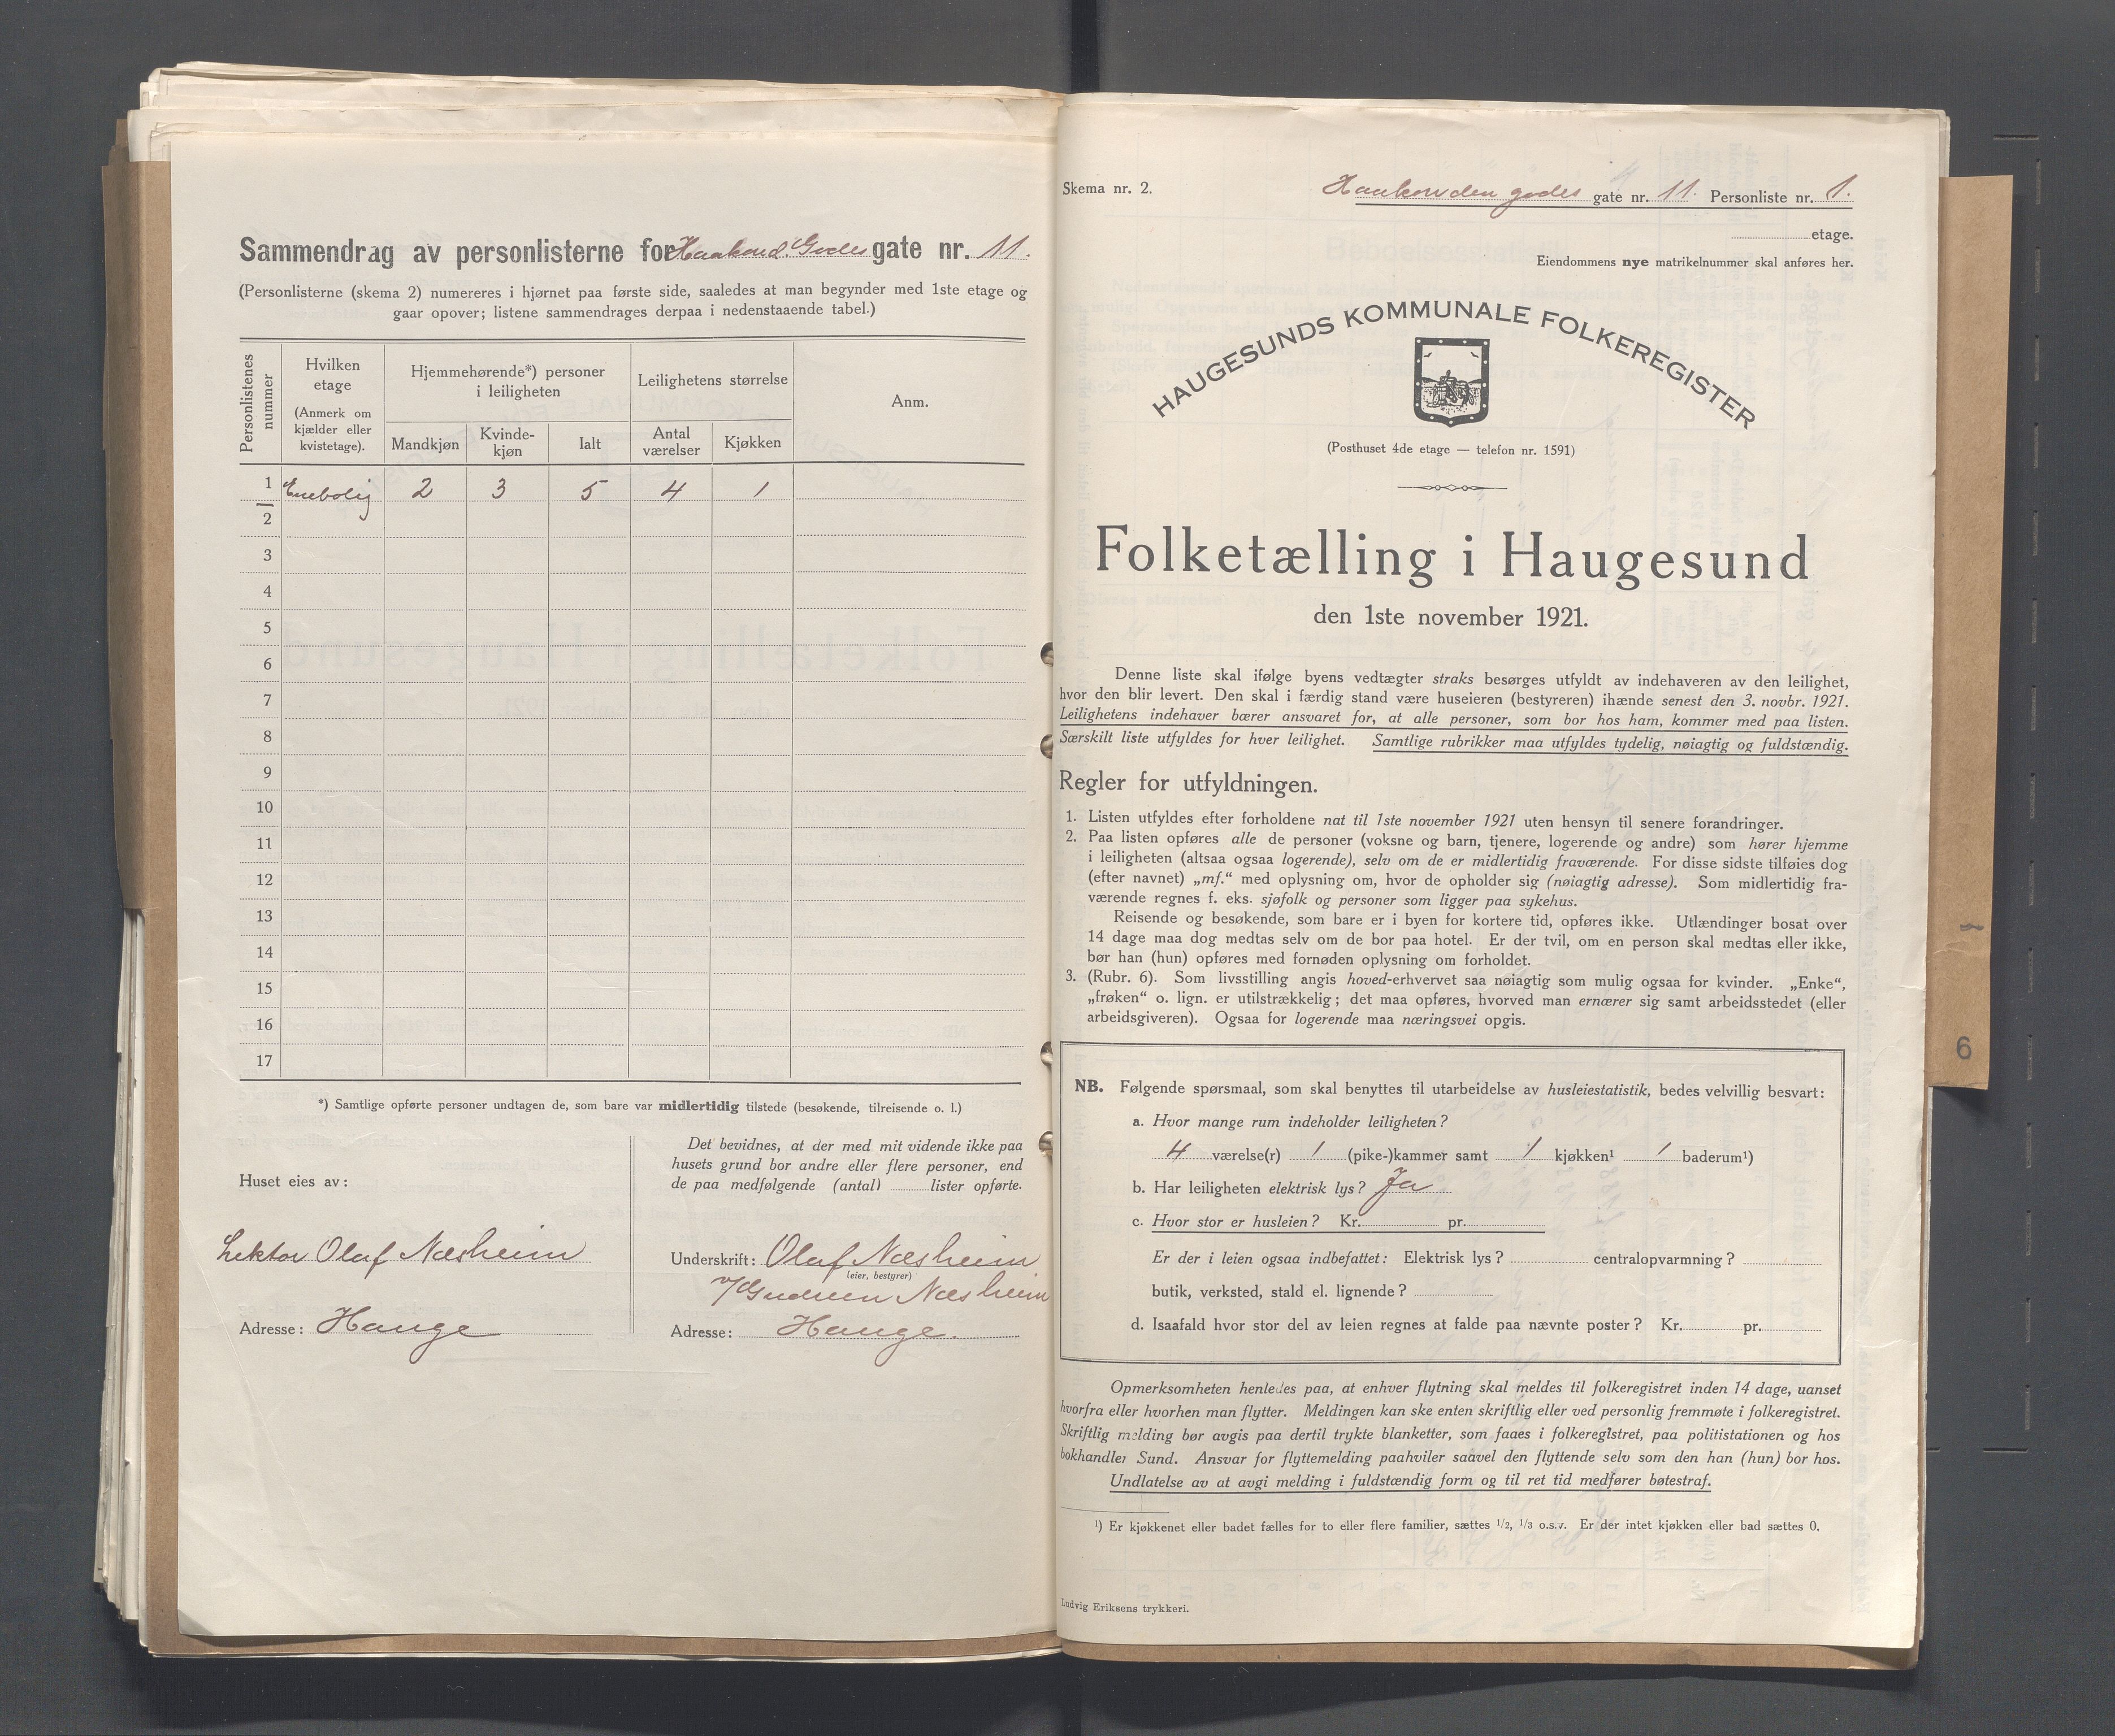 Sammendrag av personlisterne for Haakon d. Godes gate nr. 11.
(Personlisterne (skema 2) numereres i hjørnet paa første side, saaledes at man begynder med 1ste etage og
gaar opover; listene sammendrages derpaa i nedenstaaende tabel.)
Personlistenes nummer
Hvilken etage
(Anmerk om kjælder eller kvistetage).
Hjemmehørende*) personer i leiligheten
Mandkjøn
Kvinde-
kjøn
Ialt
Leilighetens størrelse
Antal værelser
Kjøkken
Anm.
1 Enebolig 2 3 5 4 1
2
3
4
5
6
7
8
9
10
11
12
13
14
15
16
17
*) Samtlige opførte personer undtagen de, som bare var midlertidig tilstede (besøkende, tilreisende o. l.)
Huset eies av:
Lektor Olaf Næsheim
Adresse: Hauge
Det bevidnes, at der med mit vidende ikke paa
husets grund bor andre eller flere personer, end
de paa medfølgende (antal) lister opførte.
Underskrift: Olaf Næsheim
(eier, bestyrer)
v/Gudrun Næsheim
Adresse: Hauge.
Skema nr. 2.
Haakon den godes gate nr. 11. Personliste nr. 1.
etage.
Eiendommens nye matrikelnummer skal anføres her.
HAUGESUNDS KOMMUNALE FOLKEREGISTER
(Posthuset 4de etage — telefon nr. 1591)
Folketælling i Haugesund
den 1ste november 1921.
Denne liste skal ifølge byens vedtægter straks besørges utfyldt av indehaveren av den leilighet,
hvor den blir levert. Den skal i færdig stand være huseieren (bestyreren) ihænde senest den 3. novbr. 1921.
Leilighetens indehaver bærer ansvaret for, at alle personer, som bor hos ham, kommer med paa listen.
Særskilt liste utfyldes for hver leilighet. Samtlige rubrikker maa utfyldes tydelig, nøiagtig og fuldstændig.
Regler for utfyldningen.
1. Listen utfyldes efter forholdene nat til 1ste november 1921 uten hensyn til senere forandringer.
2. Paa listen opføres alle de personer (voksne og barn, tjenere, logerende og andre) som hører hjemme
i leiligheten (altsaa ogsaa logerende), selv om de er midlertidig fraværende. For disse sidste tilføies dog
(efter navnet) „mf.“ med oplysning om, hvor de opholder sig (nøiagtig adresse). Som midlertidig fra-
værende regnes f. eks. sjøfolk og personer som ligger paa sykehus.
Reisende og besøkende, som bare er i byen for kortere tid, opføres ikke. Utlændinger bosat over
14 dage maa dog medtas selv om de bor paa hotel. Er der tvil, om en person skal medtas eller ikke,
bør han (hun) opføres med fornøden oplysning om forholdet.
3. (Rubr. 6). Som livsstilling angis hoved-erhvervet saa nøiagtig som mulig ogsaa for kvinder. „Enke“,
„frøken“ o. lign. er utilstrækkelig; det maa opføres, hvorved man ernærer sig samt arbeidsstedet (eller
arbeidsgiveren). Ogsaa for logerende maa næringsvei opgis.
NB. Følgende spørsmaal, som skal benyttes til utarbeidelse av husleiestatistik, bedes velvillig besvart:
a. Hvor mange rum indeholder leiligheten?
4 værelse(r) 1 (pike-)kammer samt 1 kjøkken¹ 1 baderum¹)
b. Har leiligheten elektrisk lys? Ja
c. Hvor stor er husleien? Kr. pr.
Er der i leien ogsaa indbefattet: Elektrisk lys? centralopvarmning?
butik, verksted, stald el. lignende?
d. Isaafald hvor stor del av leien regnes at falde paa nævnte poster? Kr. pr.
Opmerksomheten henledes paa, at enhver flytning skal meldes til folkeregistret inden 14 dage, uanset
hvorfra eller hvorhen man flytter. Meldingen kan ske enten skriftlig eller ved personlig fremmøte i folkeregistret.
Skriftlig melding bør avgis paa dertil trykte blanketter, som faaes i folkeregistret, paa politistationen og hos
bokhandler Sund. Ansvar for flyttemelding paahviler saavel den flyttende selv som den han (hun) bor hos.
Undlatelse av at avgi melding i fuldstændig form og til ret tid medfører bøtestraf.
¹) Er kjøkkenet eller badet fælles for to eller flere familier, sættes ¹/₂, ¹/₃ o.s.v. Er der intet kjøkken eller bad sættes 0.
Ludvig Eriksens trykkeri.
6